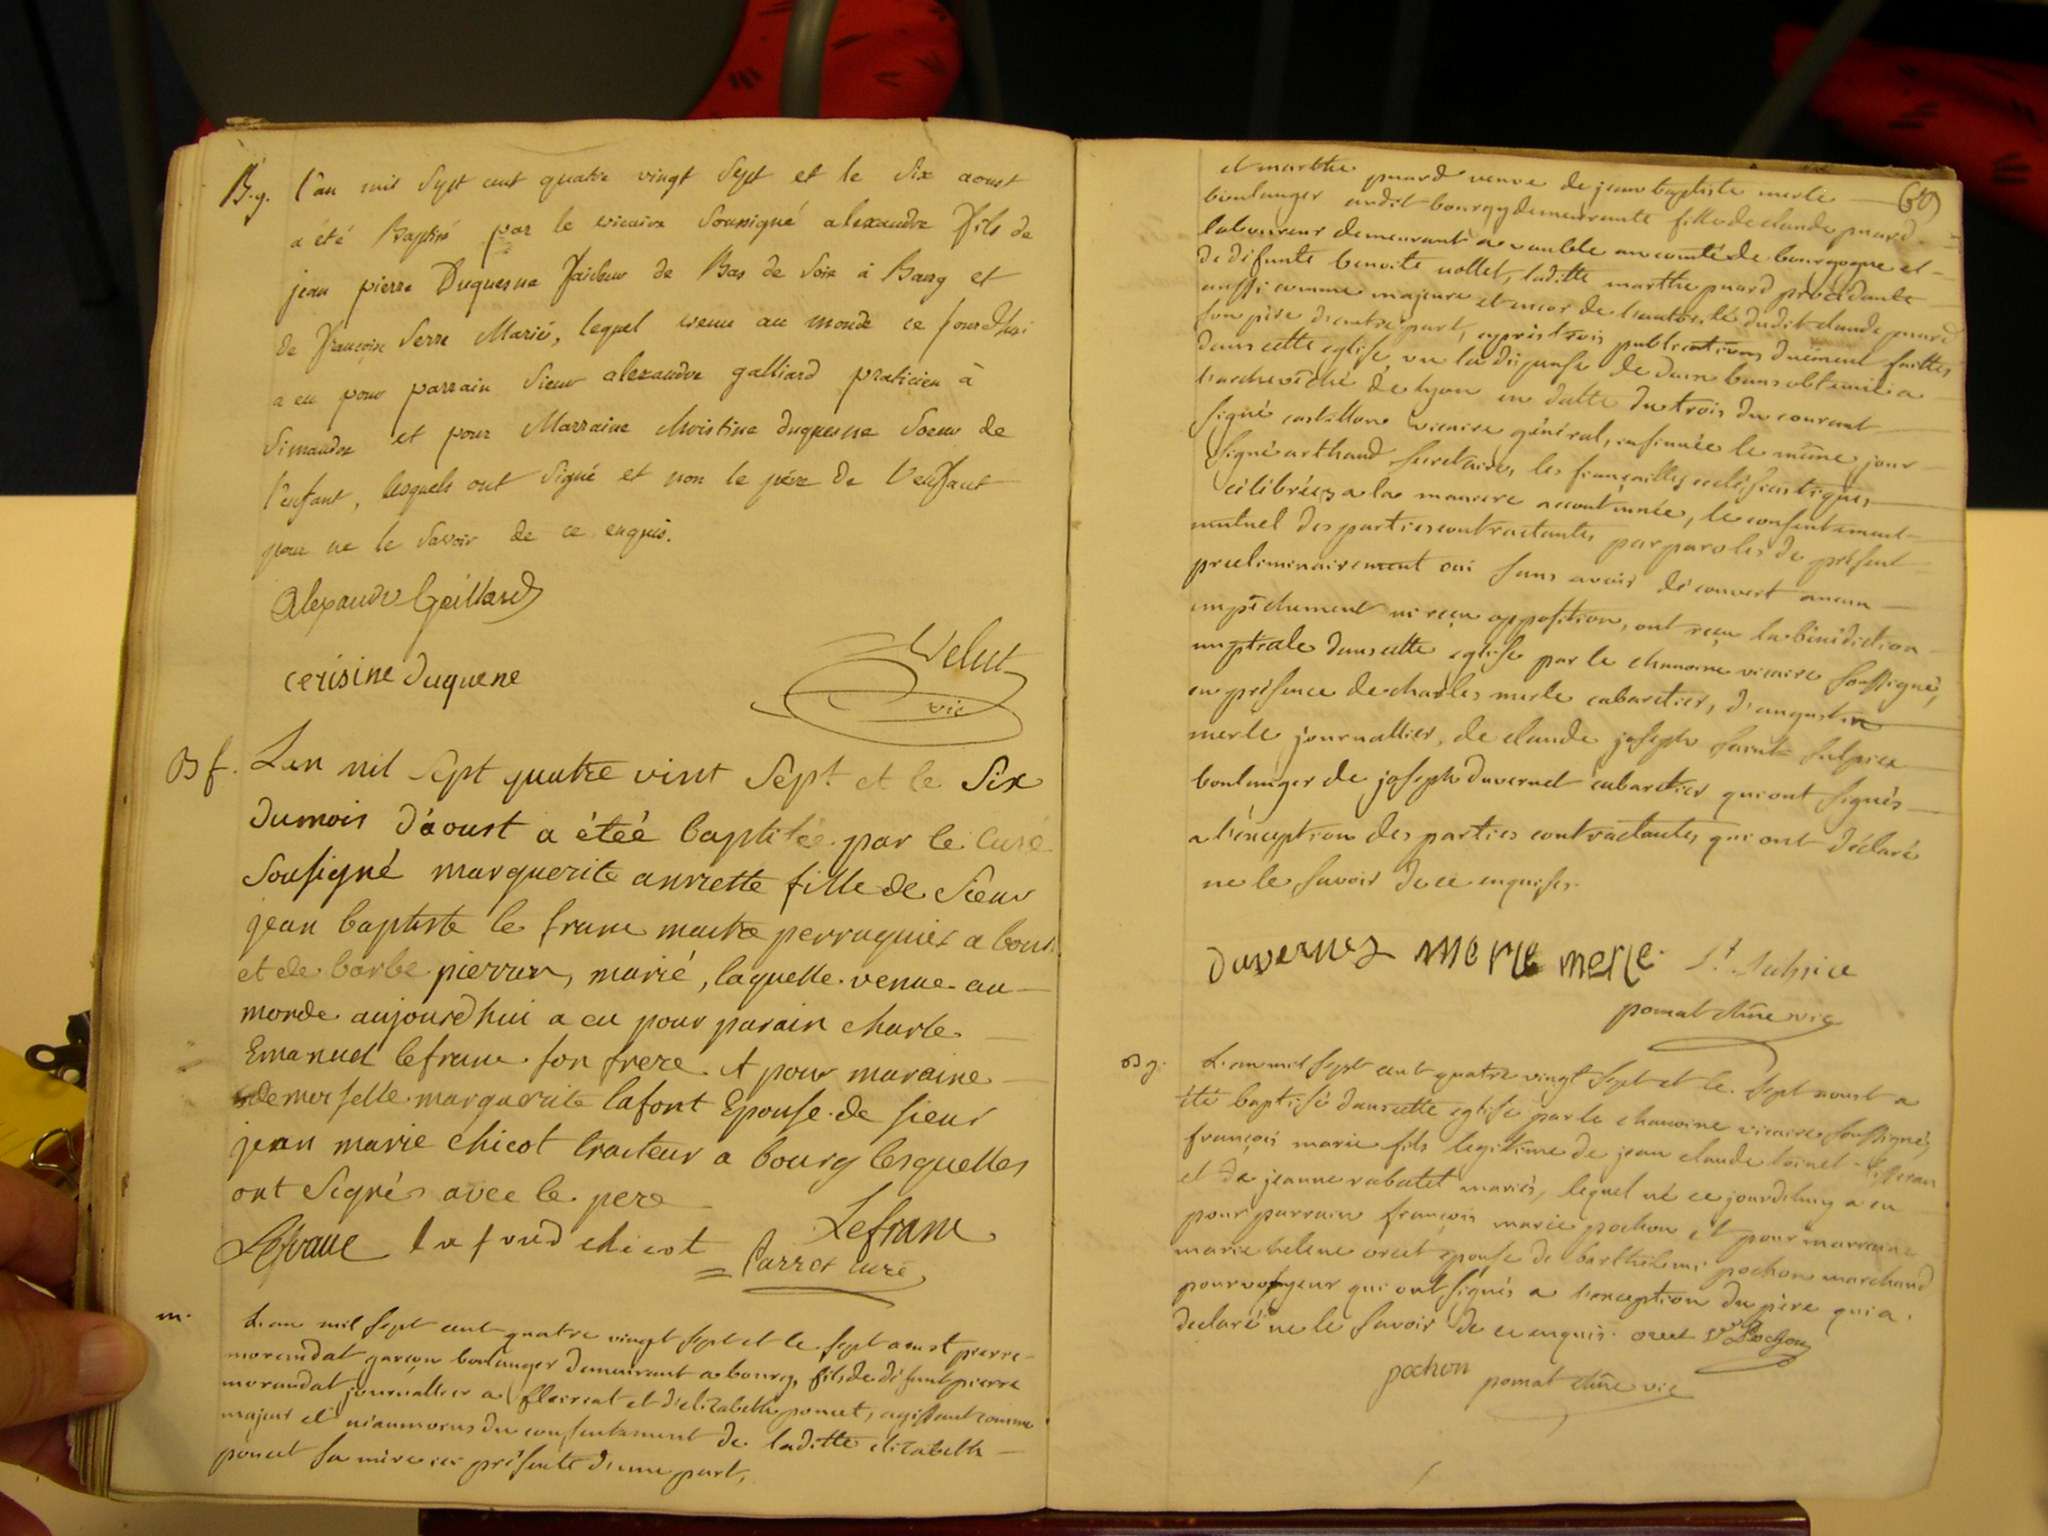 B.g. l'an mil sept cent quatre vingt sept et le six aoust
a été Baptisé par le vicaire soussigné alexandre fils de
jean pierre Duquesne faiseur de Bas de soie à Bourg et
de françoise serre Marié, lequel venu au monde ce jourd'hui
a eu pour parrain sieur alexandre galliard praticien à
simandre et pour Marraine christine duquesne soeur de
l'enfant, lesquels ont signé et non le père de l'enfant
pour ne le savoir de ce enquis.
Alexandre Gaillard
cerisine duquene
Velut
vic
B f. L'en mil sept quatre vint sept et le six
du mois d'aoust a étéé baptisée par le curé
sousigné marguerite anriette fille de sieur
jean baptiste le franc maitre perruquier a bour
et de barbe pierrun, marié, laquelle venue au
monde aujourd'hui a eu pour parain charle
Emanuel lefranc son frere et pour maraine
demoiselle marguerite lafont Epouse de sieur
jean marie chicot tracteur a bourg lesquelles
ont signés avec le pere
Lefranc lafond chicot Lefranc
Parret curé
m. L'an mil sept cent quatre vingt sept et le sept aoust pierre
morandat garçon boulanger demeurant a bourg, fils de défunt pierre
morandat journallier a fleiriat et d'elizabeth poncet, agissant comme
majeur et néanmoins du consentement de laditte elizabeth
poncet sa mère ici présente d'une part,
(69)
et marthe puard veuve de jean baptiste merle
boulanger audit bourg y demeurante fille de claude puard
laboureur demeurant a au comté de bourgogne et
de défunte benoite nollet, laditte marthe puard procédante
aussi comme majeure et encor de l'autorité dudit claude puard
son père d'autre part, après trois publications duement faittes
dans cette eglise, vu la dispense de deux bans obtenue a
l'archevêché de lyon en datte du trois du courant
signé castillon vicaire général, insinuée le même jour
signé arthaud secretaire, les fiançailles ecclésiastiques
célébrées a la maniere accoutumée, le consentement
mutuel des parties contractantes par paroles de présent
preliminairement oui sans avoir découvert aucun
empêchement ni reçu opposition, ont reçu la bénédiction
nuptiale dans cette eglise par le chanoine vicaire soussigné,
en présence de charles merle cabaretier, d'augustin
merle journallier, de claude joseph saint sulpice
boulanger de joseph duvernet cabaretier qui ont signés
a l'exception des parties contractantes qui ont déclaré
ne le savoir de ce enquises.
Duvernet merle merle. St. Sulpice
pomat chne vic
B g. L'an mil sept cent quatre vingt sept et le sept aoust a
été baptisé dans cette eglise par le chanoine vicaire soussigné,
françois marie fils legitime de jean claude loinet tisseran
et de jeanne rabatet mariés, lequel né ce jourdhuy a eu
pour parrain françois marie pochon et pour marraine
marie helene orcet epouse de barthelemi pochon marchand
pourvoyeur qui ont signés a l'exception du père qui a
declaré ne le savoir de ce enquis. orcet Pochon
pochon pomat chne vic